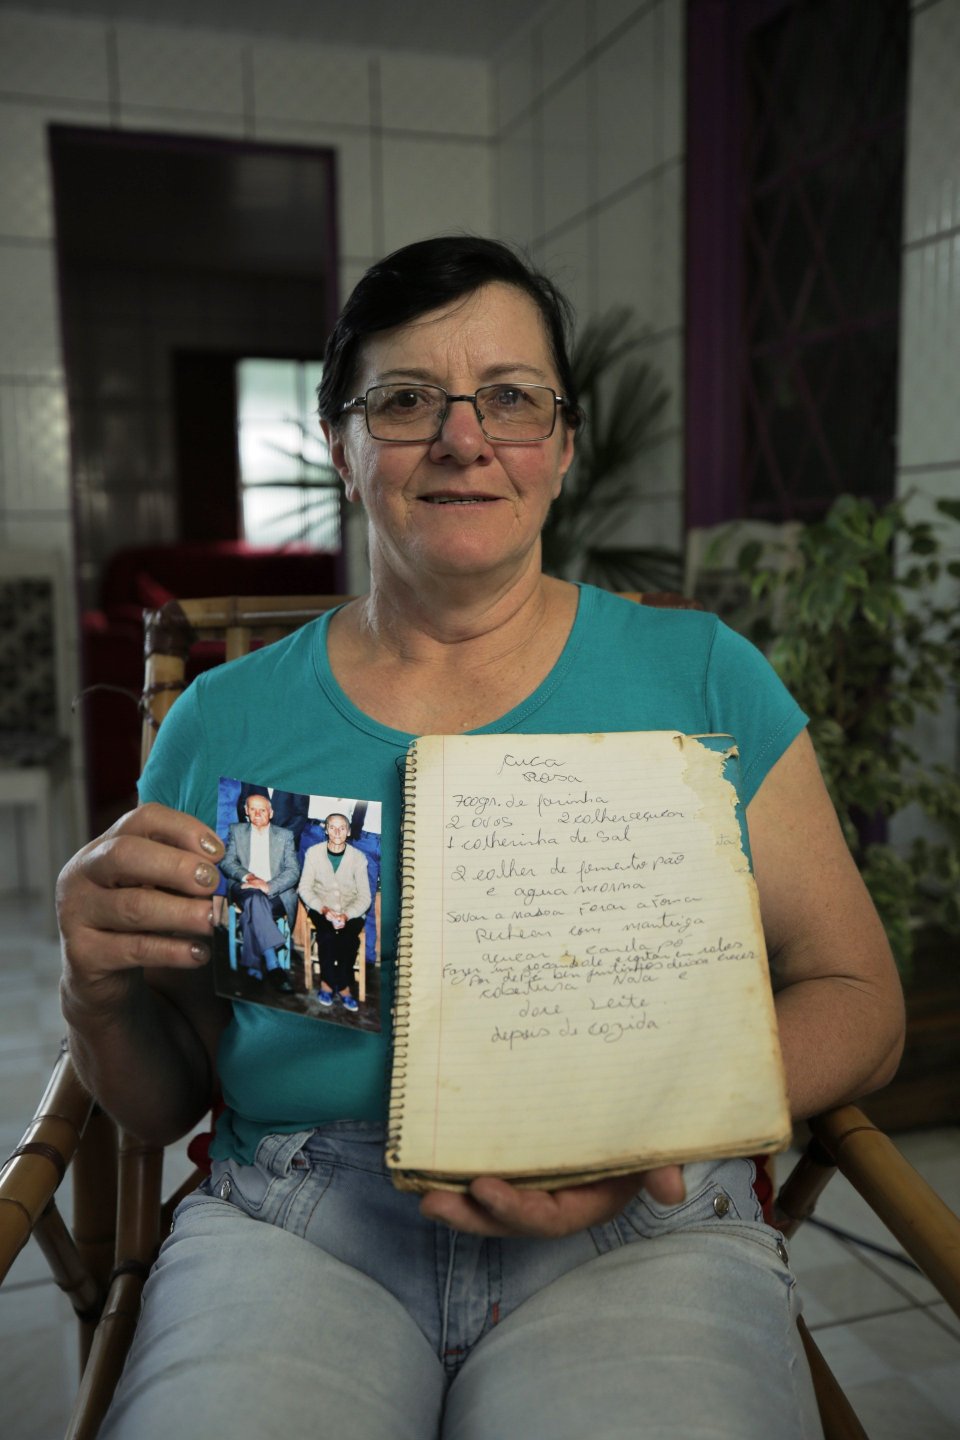 Cuca
Rosa
700gr. de farinha
2 ovos 2 colher açucar
1 colherinha de Sal
2 colher de fermento pão
e agua morna
Sovar a massa
Rechear com manteiga
açucar e canela pó
Fazer um rocambole e cortar em rodas
por bem juntinhos deixa crecer
cobertura Nata e
doce Leite
depois de cozida